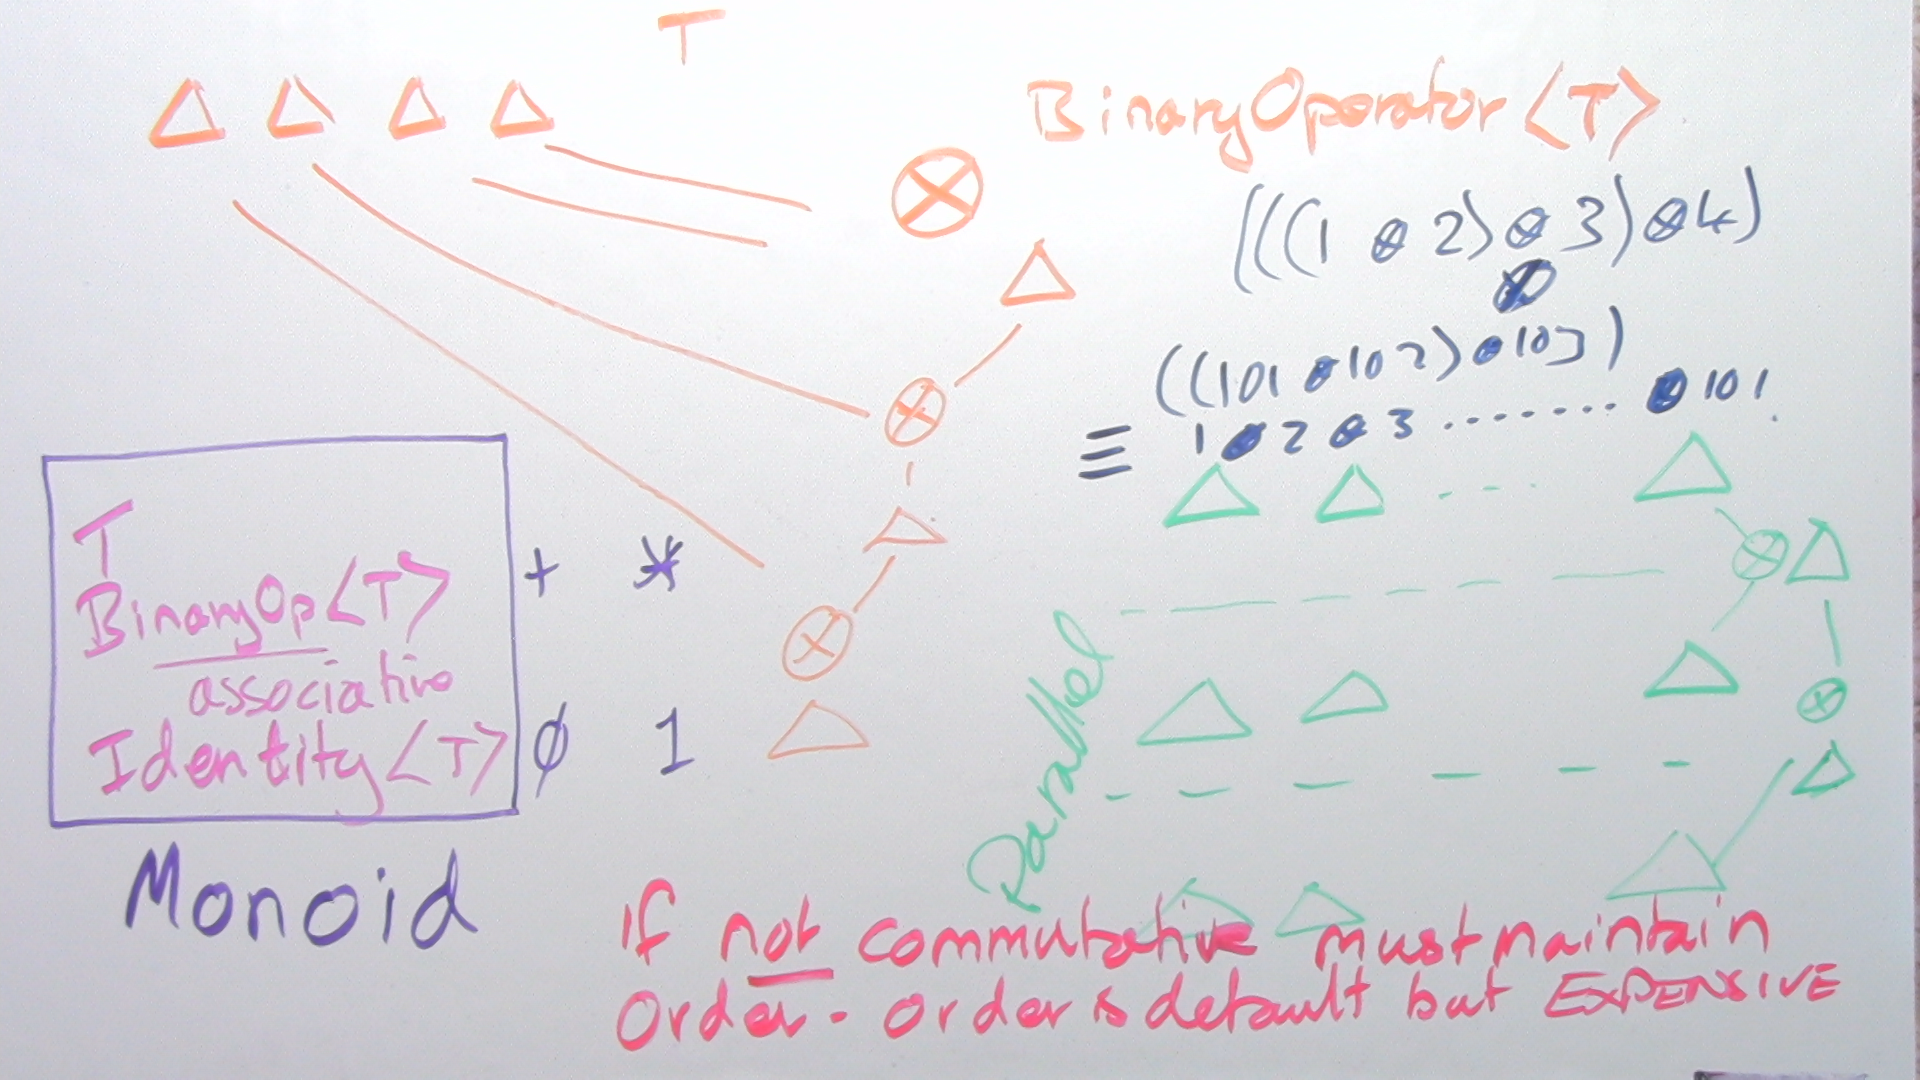 T
BinaryOperator<T>
(((1 ⊗ 2) ⊗ 3) ⊗ 4)
⊗
((101 ⊗ 102) ⊗ 103)
≡ 1 ⊗ 2 ⊗ 3 ........ ⊗ 101.
T
BinaryOp<T>
associative
Identity<T>
+ *
∅ 1
Monoid
Parallel
If not commutative must maintain
Order - order is default but EXPENSIVE